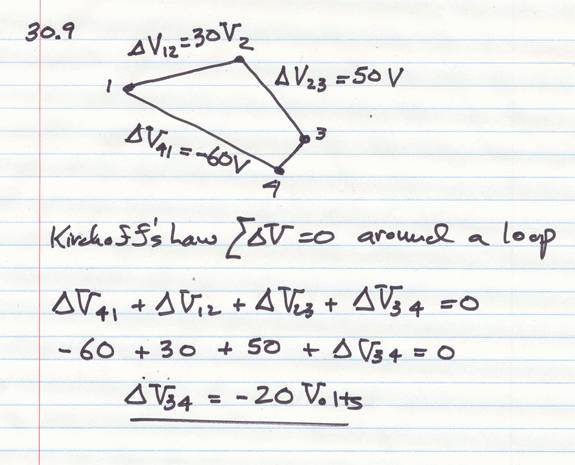 30.9
ΔV12 = 30V 2
1
ΔV23 = 50V
3
ΔV41 = -60V
4
Kirchoff's Law ΣΔV = 0 around a loop
ΔV41 + ΔV12 + ΔV23 + ΔV34 = 0
- 60 + 30 + 50 + ΔV34 = 0
ΔV34 = - 20 Volts